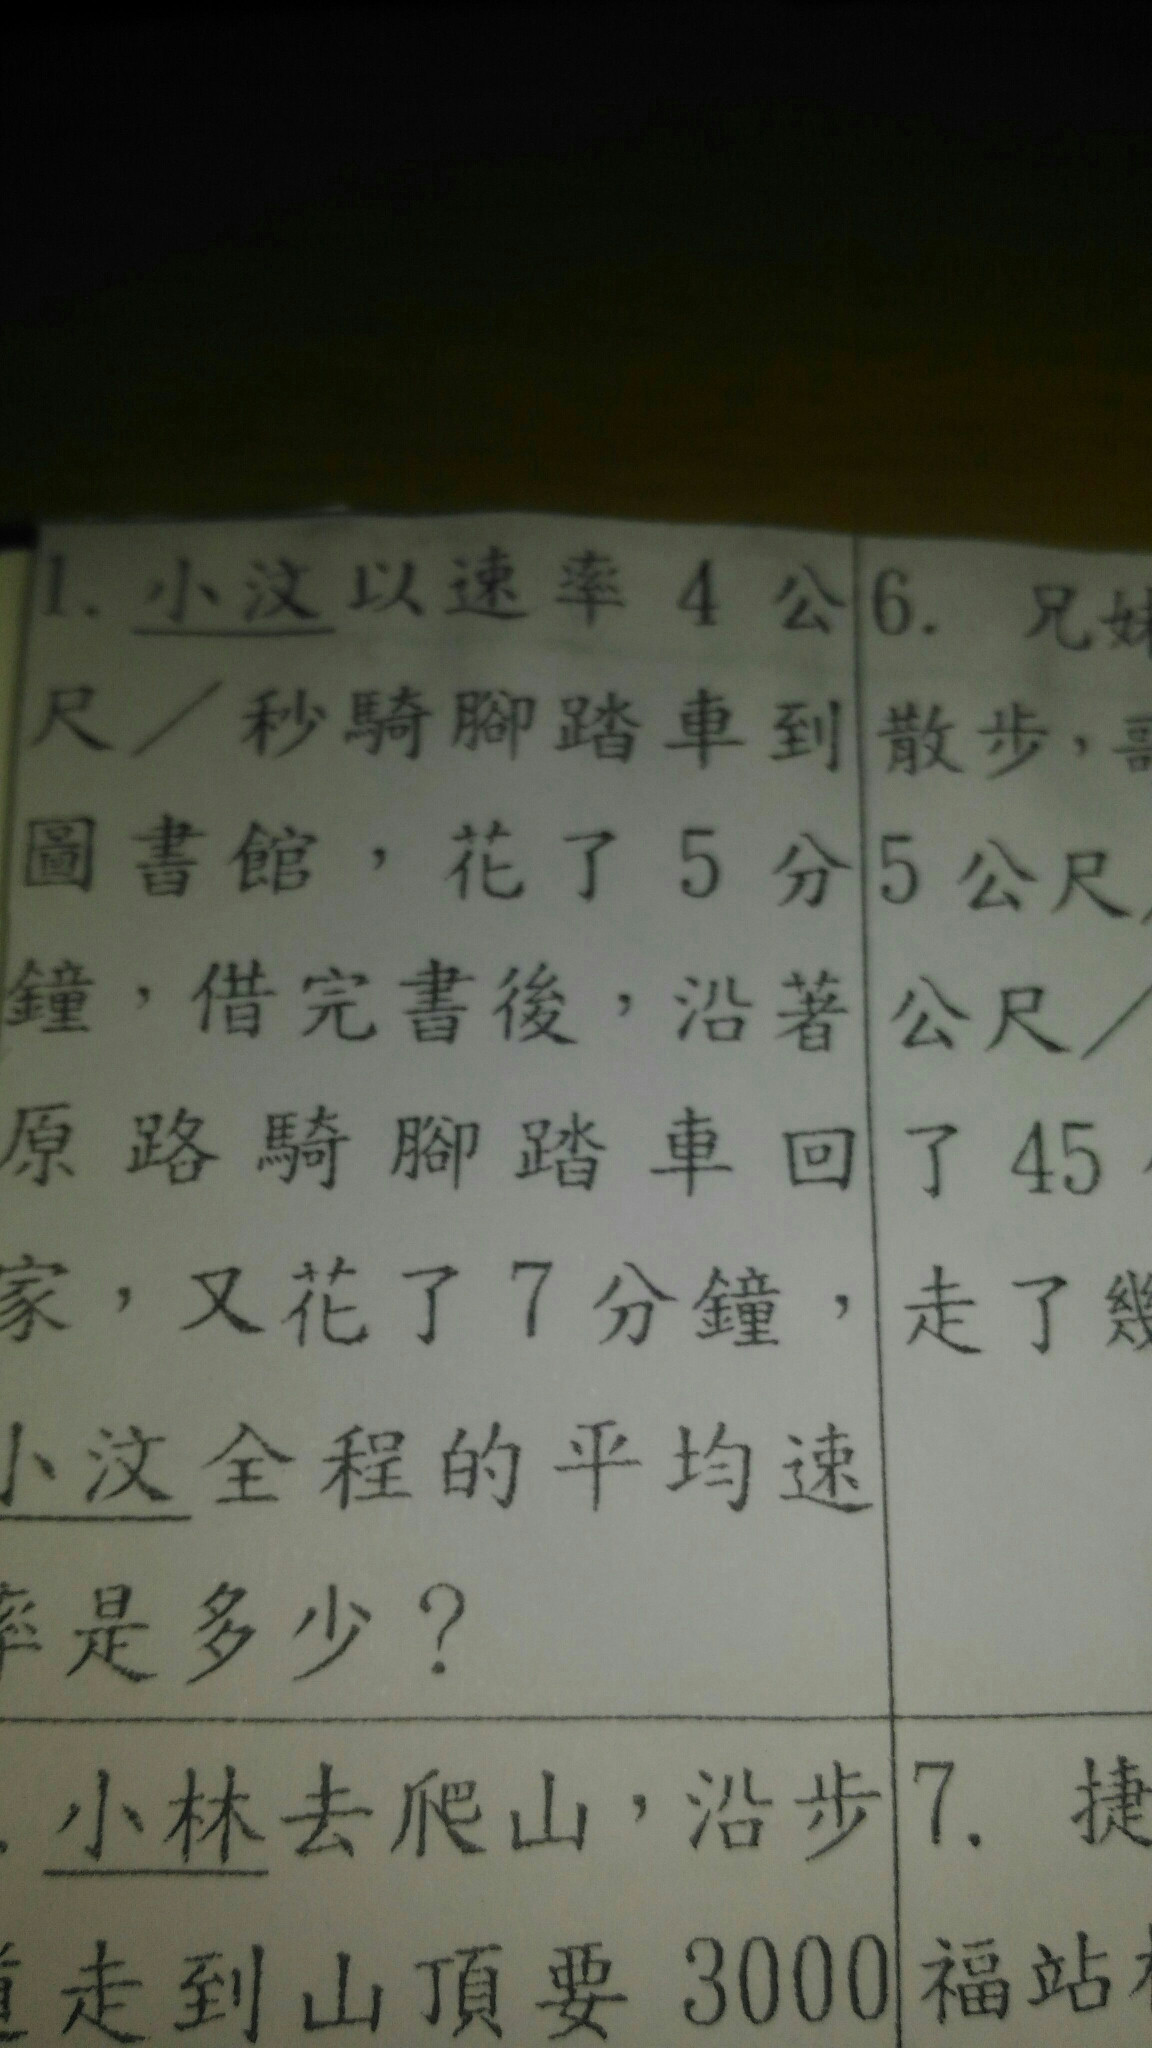 1. 小汶以速率 4 公
尺／秒騎腳踏車到
圖書館，花了 5 分
鐘，借完書後，沿著
原路騎腳踏車回
家，又花了 7 分鐘，
小汶全程的平均速
率是多少？
小林去爬山，沿步
道走到山頂要 3000
6. 兄妹
散步，哥
5 公尺／
公尺／
了 45
走了幾
7. 捷
福站